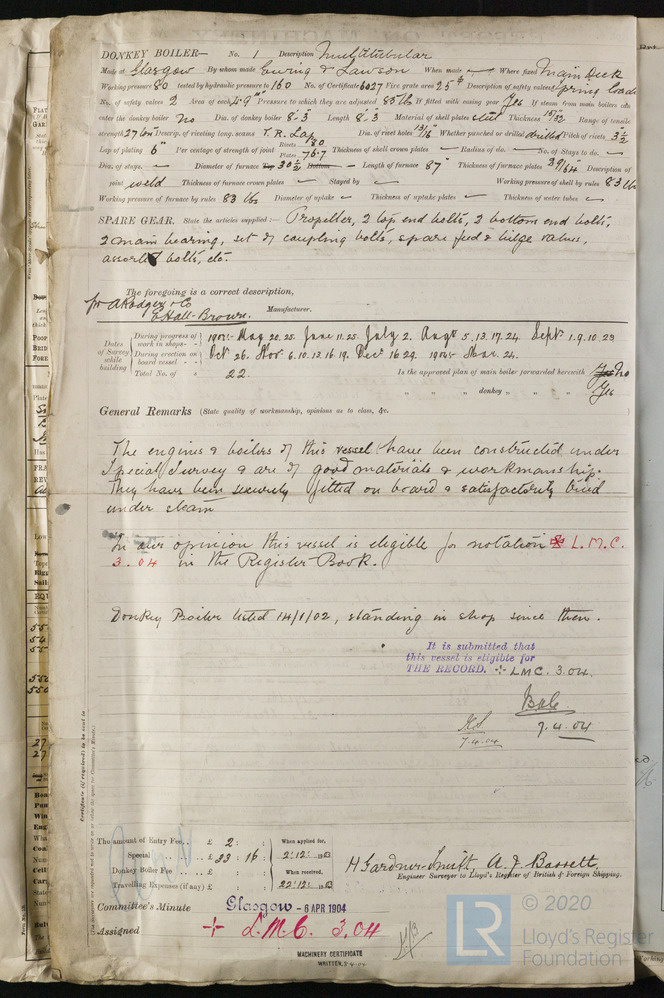 DONKEY BOILER— No. 1 Description Multitubular
Made at Glasgow By whom made Ewing & Lawson When made — Where fixed Main Deck
Working pressure 80 tested by hydraulic pressure to 160 No. of Certificate 6027 Fire grate area 25 Description of safety valves Spring loaded
No. of safety valves 2 Area of each 4.9 Pressure to which they are adjusted 85 lb If fitted with easing gear Yes If steam from main boilers can
enter the donkey boiler No Dia. of donkey boiler 8'.3 Length 8'.3 Material of shell plates steel Thickness 15/32 Range of tensile
strength 27 ton Descrip. of riveting long. seams T.R. Lap Dia. of rivet holes 13/16 Whether punched or drilled drilled Pitch of rivets 3 1/2
Lap of plating 6" Per centage of strength of joint Rivets 80 Plates 76.7 Thickness of shell crown plates — Radius of do. — No. of Stays to do. —
Dia. of stays. — Diameter of furnace Top 30 1/2 Bottom — Length of furnace 87" Thickness of furnace plates 39/64 Description of
joint weld Thickness of furnace crown plates — Stayed by — Working pressure of shell by rules 83 lbs
Working pressure of furnace by rules 83 lbs Diameter of uptake — Thickness of uptake plates — Thickness of water tubes —
SPARE GEAR. State the articles supplied:— Propeller, 2 top end bolts, 2 bottom end bolts,
2 main bearing, set of coupling bolts, spare feed & bilge valves,
assorted bolts, etc.
The foregoing is a correct description,
for A Rodger & Co
E Hall-Brown. Manufacturer.
Dates of Survey while building
During progress of work in shops - - 1903:- May 20. 25. June 11. 25. July 2. Augt 5. 13. 17. 24. Sept 1. 9. 10. 23
During erection on board vessel - - Oct 26. Nov 6. 10. 13. 16. 19. Dec 16. 29. 1904 Mar. 24.
Total No. of 22. Is the approved plan of main boiler forwarded herewith Yes No
" " " donkey " " " Yes
General Remarks (State quality of workmanship, opinions as to class, &c.
The engines & boilers of this vessel have been constructed under
Special Survey & are of good materials & workmanship.
They have been securely fitted on board & satisfactorily tried
under steam
In our opinion this vessel is eligible for notation ✠ L.M.C.
3.04 in the Register Book.
Donkey Boiler tested 14/1/02, standing in shop since then.
It is submitted that
this vessel is eligible for
THE RECORD. + LMC. 3.04.
7.4.04
7.4.04
Certificate (if required) to be sent to
The amount of Entry Fee . . £ 2 : : When applied for,
Special . . . . £ 33 : 16 : 2.12. 1903
Donkey Boiler Fee . . . £ : : When received,
Travelling Expenses (if any) £ : : 22.12. 1903
H Gardner-Smith, A. J. Bassett
Engineer Surveyor to Lloyd's Register of British & Foreign Shipping.
Committee's Minute Glasgow - 6 APR 1904
Assigned + L.M.C. 3.04
MACHINERY CERTIFICATE
WRITTEN
© 2020
LR
Lloyd's Register
Foundation